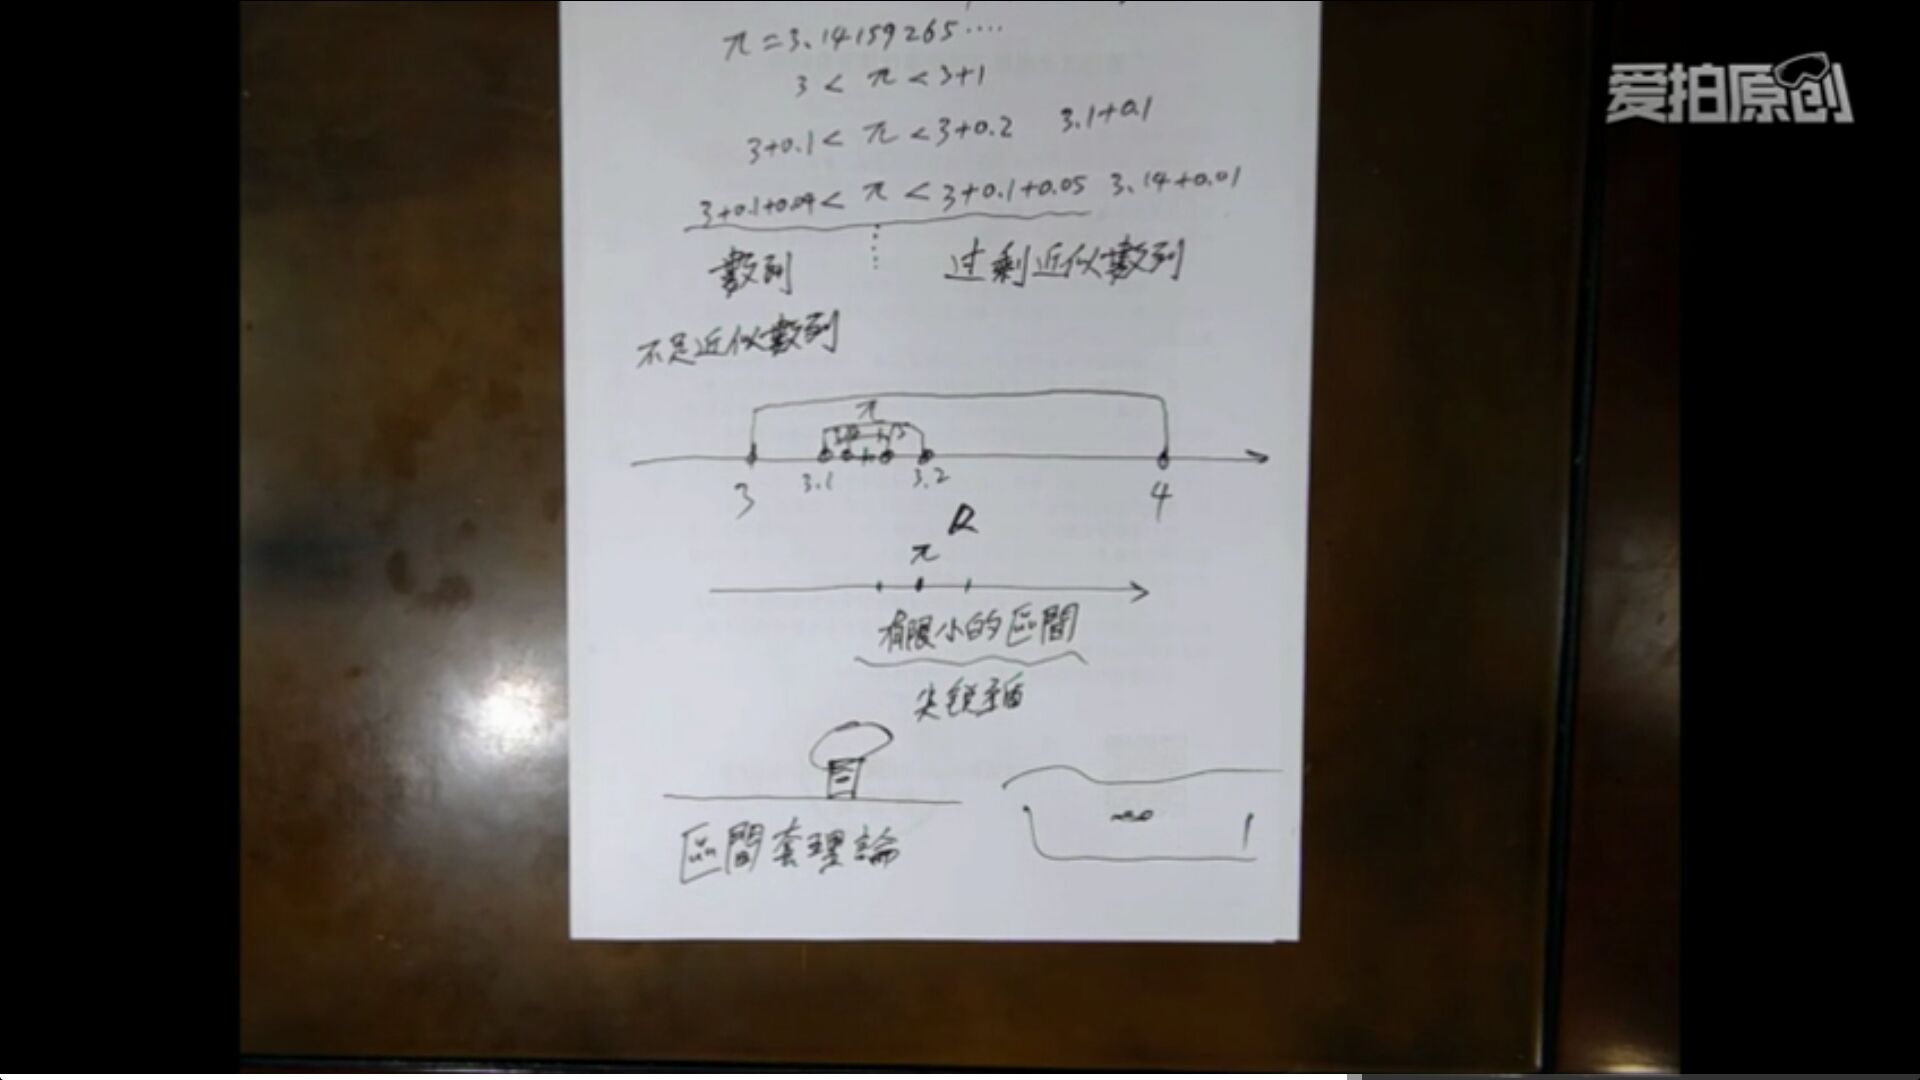 爱拍原创
π=3.14159265····
3 < π < 3+1
3+0.1 < π < 3+0.2 3.1+0.1
3+0.1+0.04 < π < 3+0.1+0.05 3.14+0.01
數列 过剩近似數列
不足近似數列
π
3 3.1 3.2 4
R
π
有限小的區間
尖銳矛盾
區間套理論